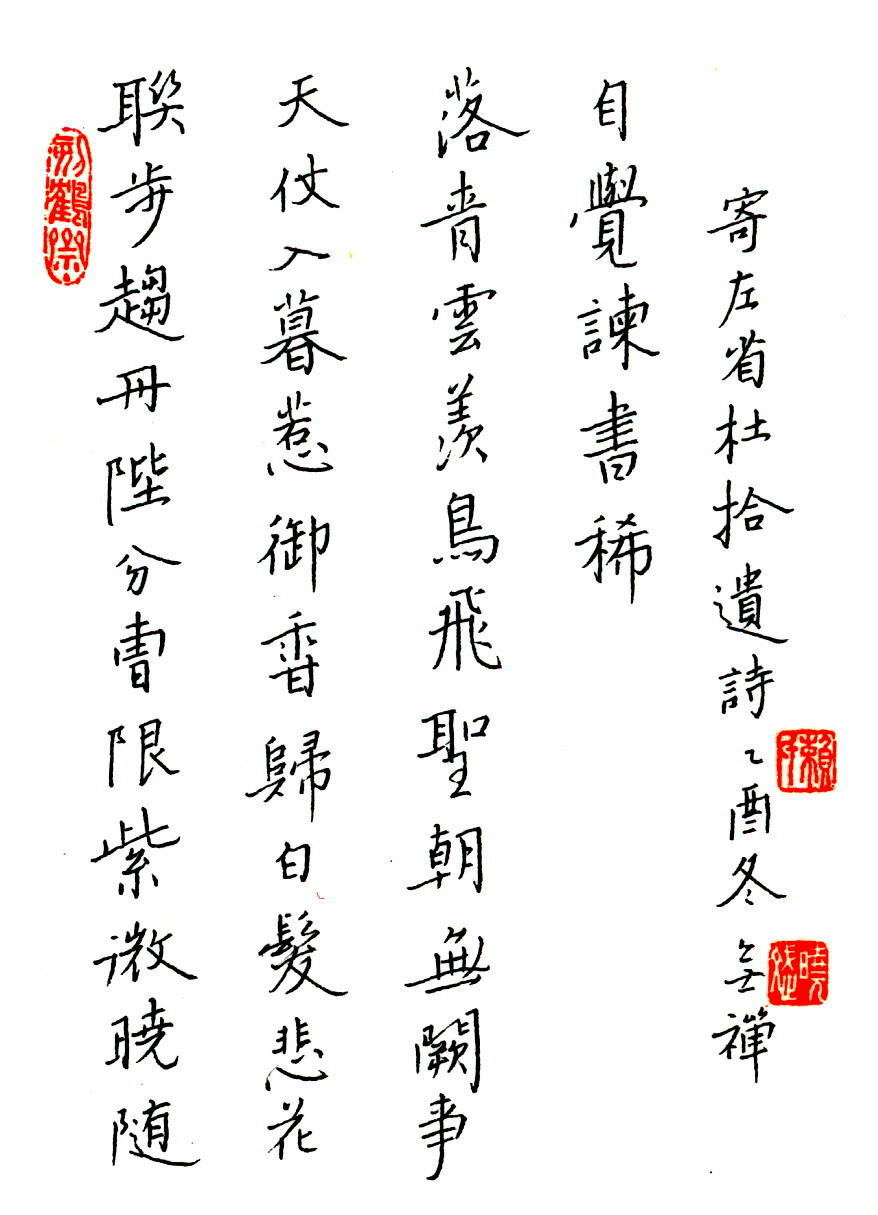 聯步趨丹陛分曹限紫微曉随
天仗入暮惹御香歸白髮悲花
落青雲羨鳥飛聖朝無闕事
自覺諫書稀
寄左省杜拾遺詩乙酉冬 禪